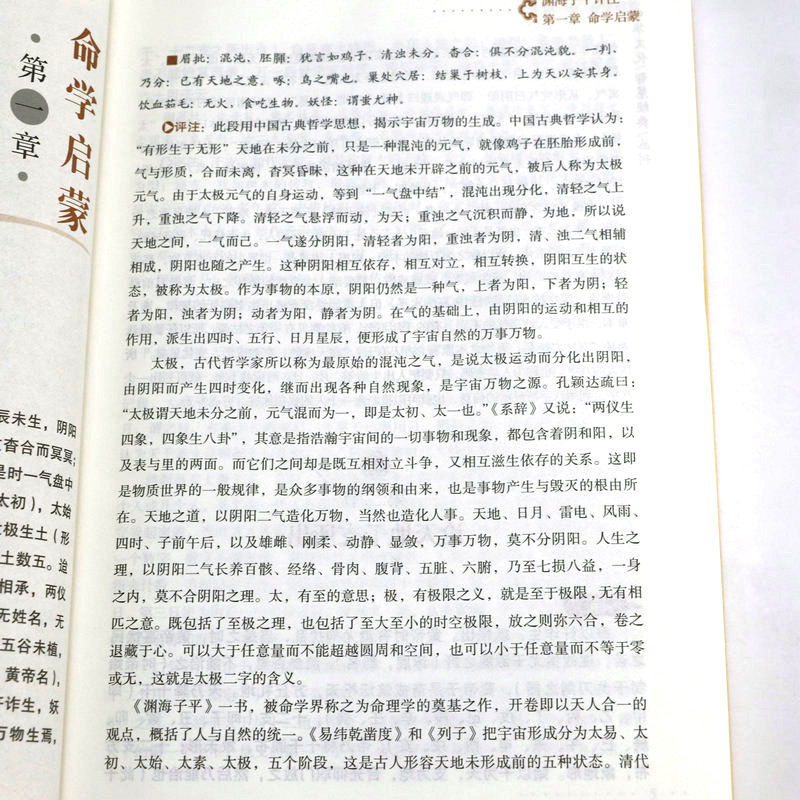 命学启蒙
·第一章·
辰未生，阴阳
杳合而冥冥；
是时一气盘中
太初），太始
太极生土（形
土数五。迨
相承，两仪
无姓名，无
五谷未植，
黄帝名），
诈生，妖
万物生焉，
渊海子平评注
第一章 命学启蒙
■眉批：混沌、胚腪：犹言如鸡子，清浊未分。杳合：俱不分混沌貌。一判、
乃分：已有天地之意。啄：鸟之嘴也。巢处穴居：结巢于树枝，上为天以安其身。
饮血茹毛：无火，食吃生物。妖怪：谓蚩尤神。
评注：此段用中国古典哲学思想，揭示宇宙万物的生成。中国古典哲学认为：
“有形生于无形”天地在未分之前，只是一种混沌的元气，就像鸡子在胚胎形成前，
气与形质，合而未离，杳冥昏昧，这种在天地未开辟之前的元气，被后人称为太极
元气。由于太极元气的自身运动，等到“一气盘中结”，混沌出现分化，清轻之气上
升，重浊之气下降。清轻之气悬浮而动，为天；重浊之气沉积而静，为地，所以说
天地之间，一气而已。一气遂分阴阳，清轻者为阳，重浊者为阴，清、浊二气相辅
相成，阴阳也随之产生。这种阴阳相互依存，相互对立，相互转换，阴阳互生的状
态，被称为太极。作为事物的本原，阴阳仍然是一种气，上者为阳，下者为阴；轻
者为阳，浊者为阴；动者为阳，静者为阴。在气的基础上，由阴阳的运动和相互的
作用，派生出四时、五行、日月星辰，便形成了宇宙自然的万事万物。
太极，古代哲学家所以称为最原始的混沌之气，是说太极运动而分化出阴阳，
由阴阳而产生四时变化，继而出现各种自然现象，是宇宙万物之源。孔颖达疏曰：
“太极谓天地未分之前，元气混而为一，即是太初、太一也。”《系辞》又说：“两仪生
四象，四象生八卦”，其意是指浩瀚宇宙间的一切事物和现象，都包含着阴和阳，以
及表与里的两面。而它们之间却是既互相对立斗争，又相互滋生依存的关系。这即
是物质世界的一般规律，是众多事物的纲领和由来，也是事物产生与毁灭的根由所
在。天地之道，以阴阳二气造化万物，当然也造化人事。天地、日月、雷电、风雨、
四时、子前午后，以及雄雌、刚柔、动静、显敛，万事万物，莫不分阴阳。人生之
理，以阴阳二气长养百骸、经络、骨肉、腹背、五脏、六腑，乃至七损八益，一身
之内，莫不合阴阳之理。太，有至的意思；极，有极限之义，就是至于极限，无有相
匹之意。既包括了至极之理，也包括了至大至小的时空极限，放之则弥六合，卷之
退藏于心。可以大于任意量而不能超越圆周和空间，也可以小于任意量而不等于零
或无，这就是太极二字的含义。
《渊海子平》一书，被命学界称之为命理学的奠基之作，开卷即以天人合一的
观点，概括了人与自然的统一。《易纬乾凿度》和《列子》把宇宙形成分为太易、太
初、太始、太素、太极，五个阶段，这是古人形容天地未形成前的五种状态。清代